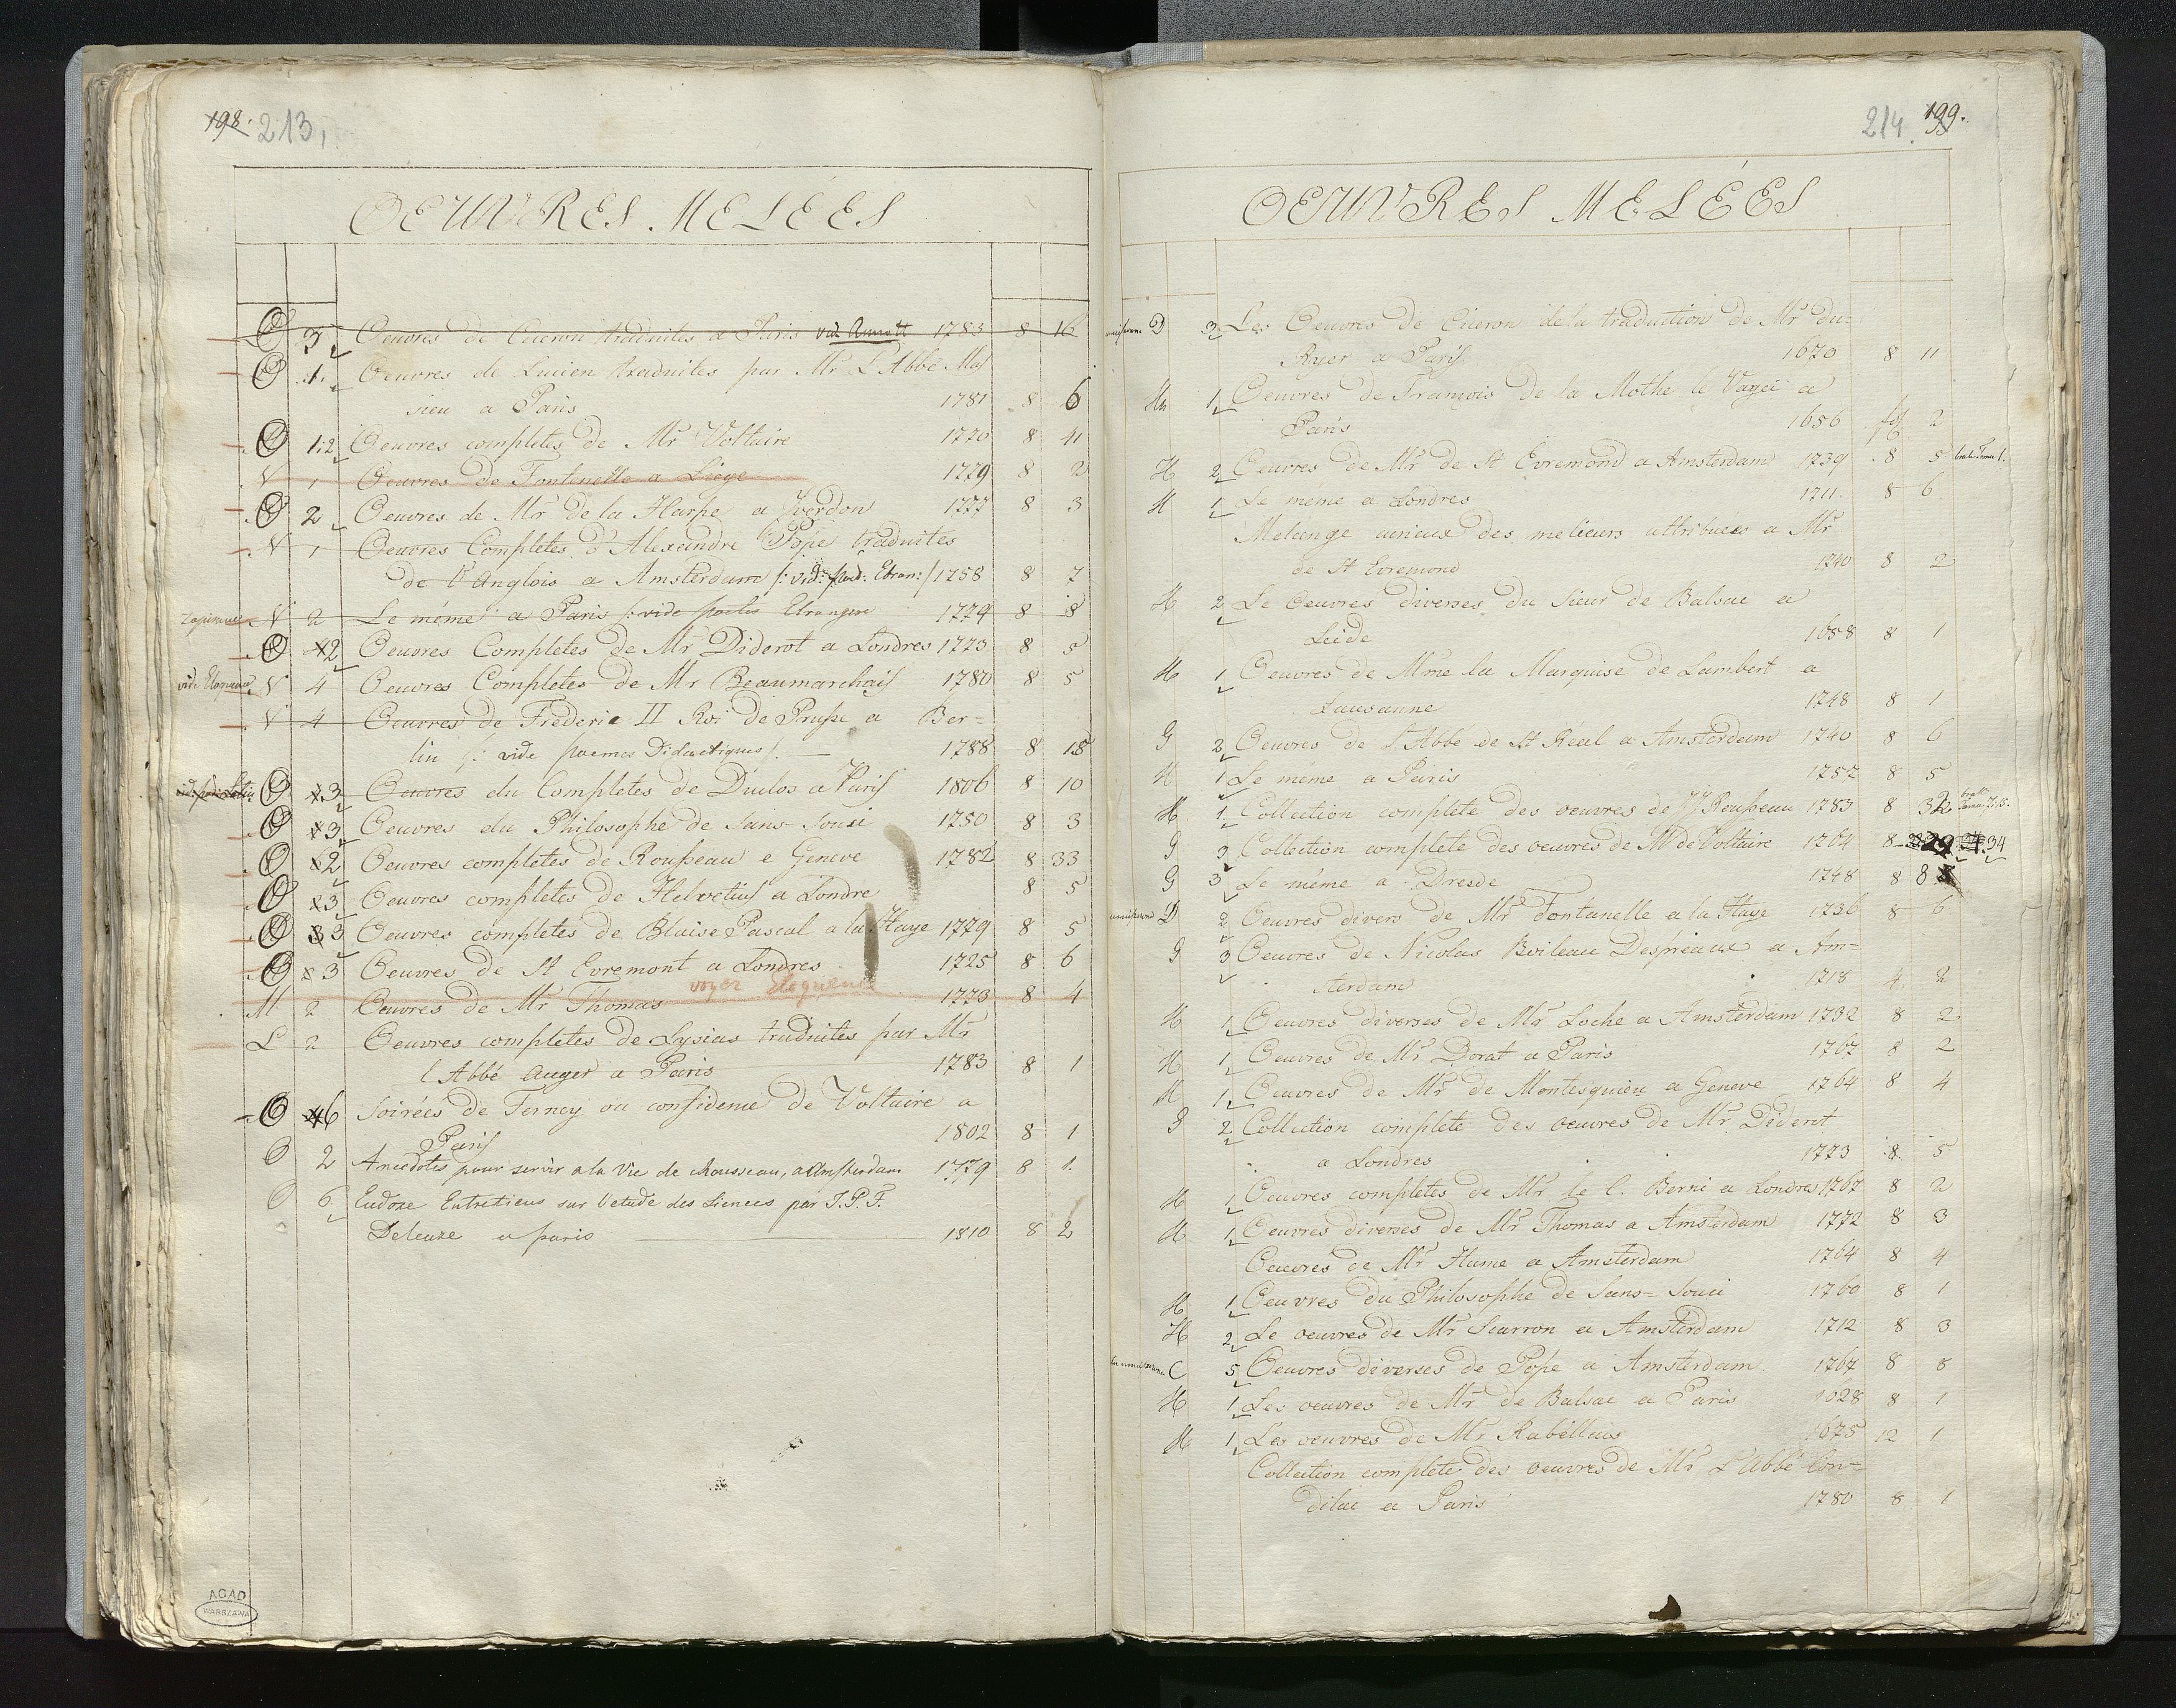 198. 213,
OEUVRES MELÉES
O 3 Oeuvres de Ciceron traduites a Paris 1783 8 16
O 1. Oeuvres de Lucien traduites par Mr L'Abbé Mas
sieu a Paris 1781 8 6
O 1.2 Oeuvres completes de Mr Voltaire 1770 8 41
V 1 Oeuvres de Fontenelle a Liege 1779 8 2
O 2 Oeuvres de Mr De la Harpe a Yverdon 1777 8 3
V 1 Oeuvres Completes d'Alexandre Pope traduites
de l'Anglois a Amsterdam /: vid: poet: Etran: / 1758 8 7
V 2 Le méme a Paris /: vide poetes Etrangers 1779 8 8
O 2 Oeuvres Completes de Mr Diderot a Londres 1773 8 5
V 4 Oeuvres Completes de Mr Beaumarchais 1780 8 5
V 4 Oeuvres de Fréderic II Roi de Prusse a Ber=
lin /: vide poemes Didactiques /. 1788 8 18
O 3 Oeuvres du Completes de Duclos a Paris 1806 8 10
O 3 Oeuvres du Philosophe de Sans-Souci 1750 8 3
O 2 Oeuvres completes de Rousseau e Geneve 1782 8 33
O 3 Oeuvres completes de Helvetius a Londre 8 5
O 3 Oeuvres completes de Blaise Pascal a la Haye 1779 8 5
O 3 Oeuvres de St Evremont a Londres 1725 8 6
voyer Eloquence
M 2 Oeuvres de Mr Thomas 1773 8 4
L 2 Oeuvres completes de Lysias traduites par Mr
l'Abbé Auger a Paris 1783 8 1
O 6 Soirées de Ferney ou confidence de Voltaire a
Paris 1802 8 1
O 2 Anecdotes pour servir a la Vie de Rousseau, a Amsterdam 1779 8 1.
O 6. Eudoxe Entretiens sur l'etude des Siences par J. P. F.
Deleuze a paris 1810 8 2
AGAD
WARSZAWA
214. 199.
OEUVRES MELÉES
D 3 Les Oeuvres de Ciceron de la traduction de Mr du=
Ryer a Paris 1670 8 11
H 1 Oeuvres de François de la Mothe le Vayer a
Paris 1656 fo 2
H 2 Oeuvres de Mr de St Evremond a Amsterdam 1739 8 5
H 1 Le meme a Londres 1711. 8 6
Melange curieux des melieurs attribuées a Mr
de St Evremond 1740 8 2
H 2 Le Oeuvres diverses du Sieur de Balsac a
Leide 1658 8 1
H 1 Oeuvres de Mme la Marquise de Lambert a
Lausanne 1748 8 1
G 2 Oeuvres de L'Abbé de St Réal a Amsterdam 1740 8 6
H 1 Le méme a Paris 1752 8 5
H 1 Collection complete des oeuvres de JJ Rousseau 1783 8 32
G 3 Collection complete des oeuvres de Mr de Voltaire 1764 8 29 34
G 3 Le méme a Dresde 1748 8 8
D 2 Oeuvres divers de Mr Fontanelle a la Haye 1736 8 6
G 3 Oeuvres de Nicolas Boileau Despréaux a Am=
sterdam 1718 4. 2
H 1 Oeuvres diverses de Mr Loche a Amsterdam 1732 8 2
H 1 Oeuvres de Mr Dorat a Paris 1767 8 2
H 1 Oeuvres de Mr de Montesquieu a Geneve 1764 8 4
G 2 Collection complete des oeuvres de Mr Diderot
a Londres 1773 8. 5
H 1 Oeuvres completes de Mr le C. Berni a Londres 1767 8 2
H 1 Oeuvres diverses de Mr Thomas a Amsterdam 1772 8 3
Oeuvres de Mr Hume a Amsterdam 1764 8 4
H 1 Oeuvres du Philosophe de Sans=Souci 1760 8 1
H 2 Le oeuvres de Mr Scarron a Amsterdam 1712 8 3
C 5 Oeuvres diverses de Pope a Amsterdam 1767 8 8
H 1 Les oeuvres de Mr de Balsac a Paris 1628 8 1
H 1 Les oeuvres de Mr Rabéllais 1675 12 1
Collection complete des oeuvres de Mr L'Abbé Con=
dilac a Paris 1780 8 1